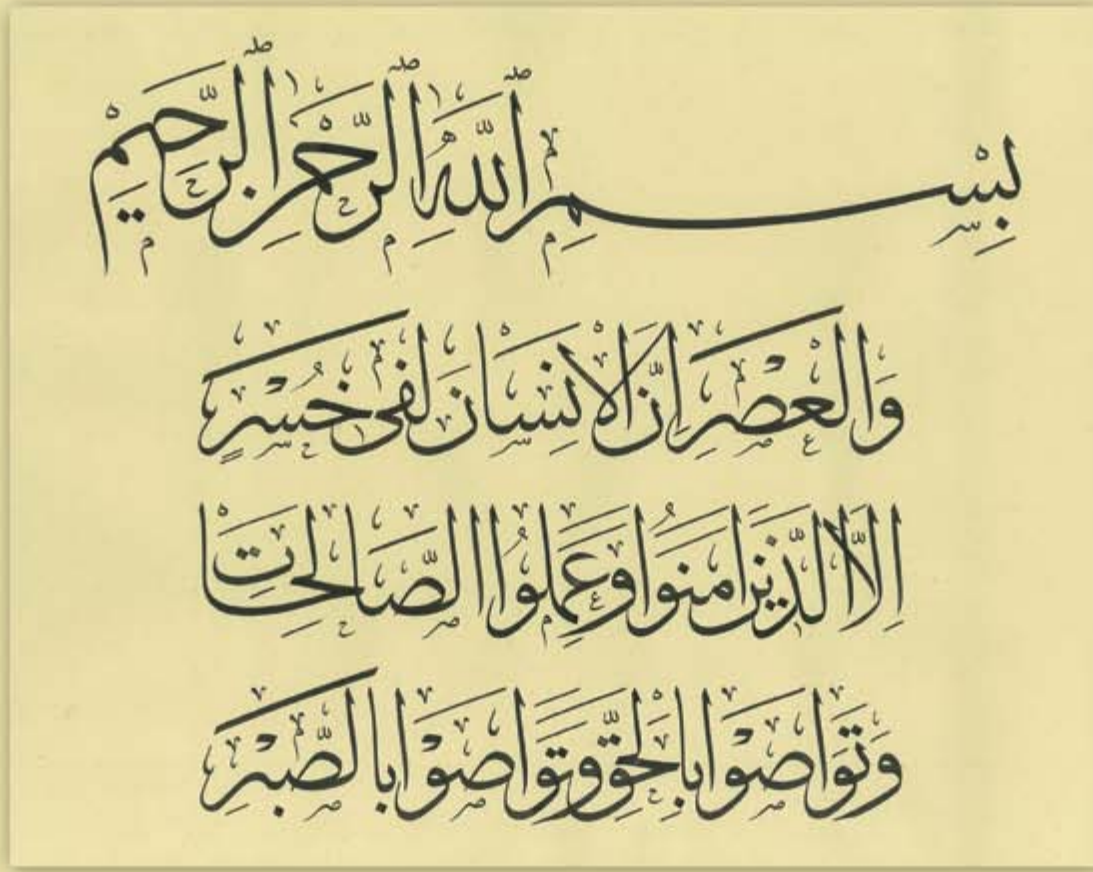 بِسْمِ اللّٰهِ الرَّحْمٰنِ الرَّحِيْمِ
وَالْعَصْرِ اِنَّ الْاِنْسَانَ لَفِى خُسْرٍ
اِلَّا الَّذِيْنَ اٰمَنُوا وَعَمِلُوا الصَّالِحَاتِ
وَتَوَاصَوْا بِالْحَقِّ وَتَوَاصَوْا بِالصَّبْرِ